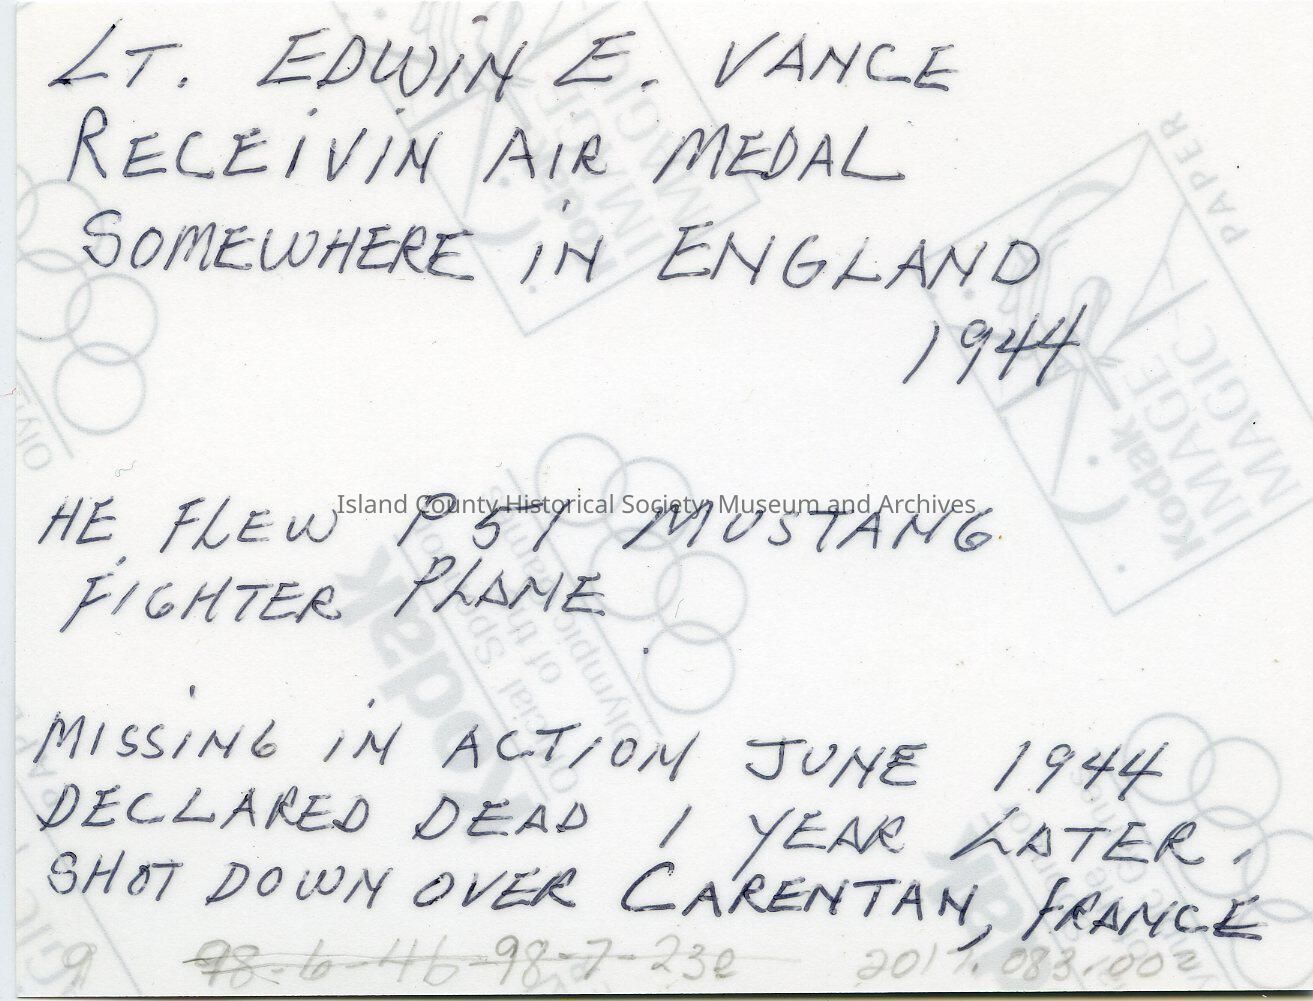 LT. EDWIN E. VANCE
RECEIVIN AIR MEDAL
SOMEWHERE IN ENGLAND
1944
Island County Historical Society, Museum and Archives
HE FLEW P 51 MUSTANG
FIGHTER PLANE
MISSING IN ACTION JUNE 1944
DECLARED DEAD 1 YEAR LATER.
SHOT DOWN OVER CARENTAN, FRANCE
9 98-6-46 98-7-23e 2017.083.002
Kodak
IMAGE
MAGIC
PAPER
Kodak
IMAGE
MAGIC
Kodak